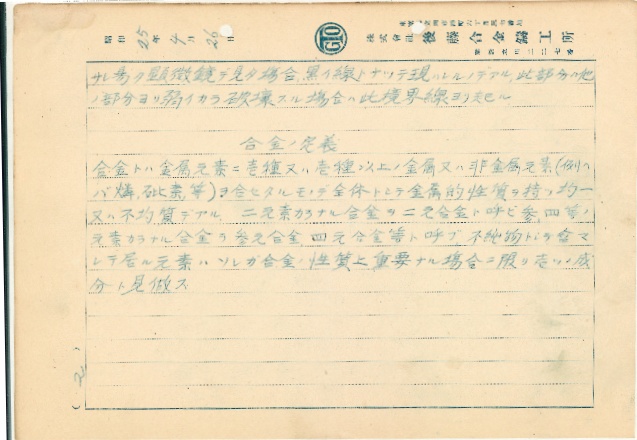 昭和25年4月26日
GTO
株式會社 後藤合金鑄工所
サレ易ク顕微鏡デ見タ場合、黒イ線トナッテ現ハレルノデアル、此部分ハ他
ノ部分ヨリ弱イカラ破壊スル場合ハ此境界線ヨリ起ル
合金ノ定義
合金トハ金属元素ニ壱種又ハ壱種以上ノ金属又ハ非金属元素(例ヘ
バ燐、砒素、等)ヲ合セタルモノデ全体トシテ金属的性質ヲ持ツ均一
又ハ不均質デアル、二元素カラナル合金ヲ二元合金ト呼ビ参、四等ノ
元素カラナル合金ヲ参元合金 四元合金等ト呼ブ 不純物トシテ含マ
レテ居ル元素ハソレガ合金ノ性質上重要ナル場合ニ限リ壱ツノ成
分ト見做ス